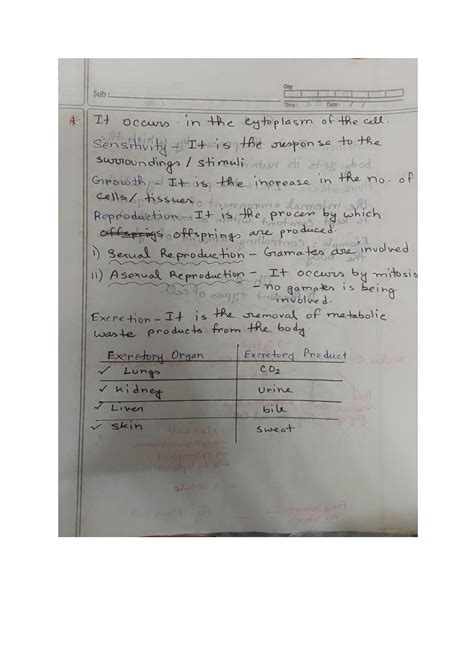 Sub:
Day
Time: Date: / /
* It occurs in the cytoplasm of the cell.
Sensitivity – It is the response to the
surroundings / stimuli
Growth – It is the increase in the no. of
cells/ tissues
Reproduction – It is the process by which
offsprings are produced.
i) Sexual Reproduction – Gamates are involved.
ii) Asexual Reproduction – It occurs by mitosis
– no gamates is being
involved.
Excretion – It is the removal of metabolic
waste products from the body.
Excretory Organ Excretory Product
✓ Lungs CO2
✓ Kidney Urine
✓ Liver bile
✓ Skin sweat